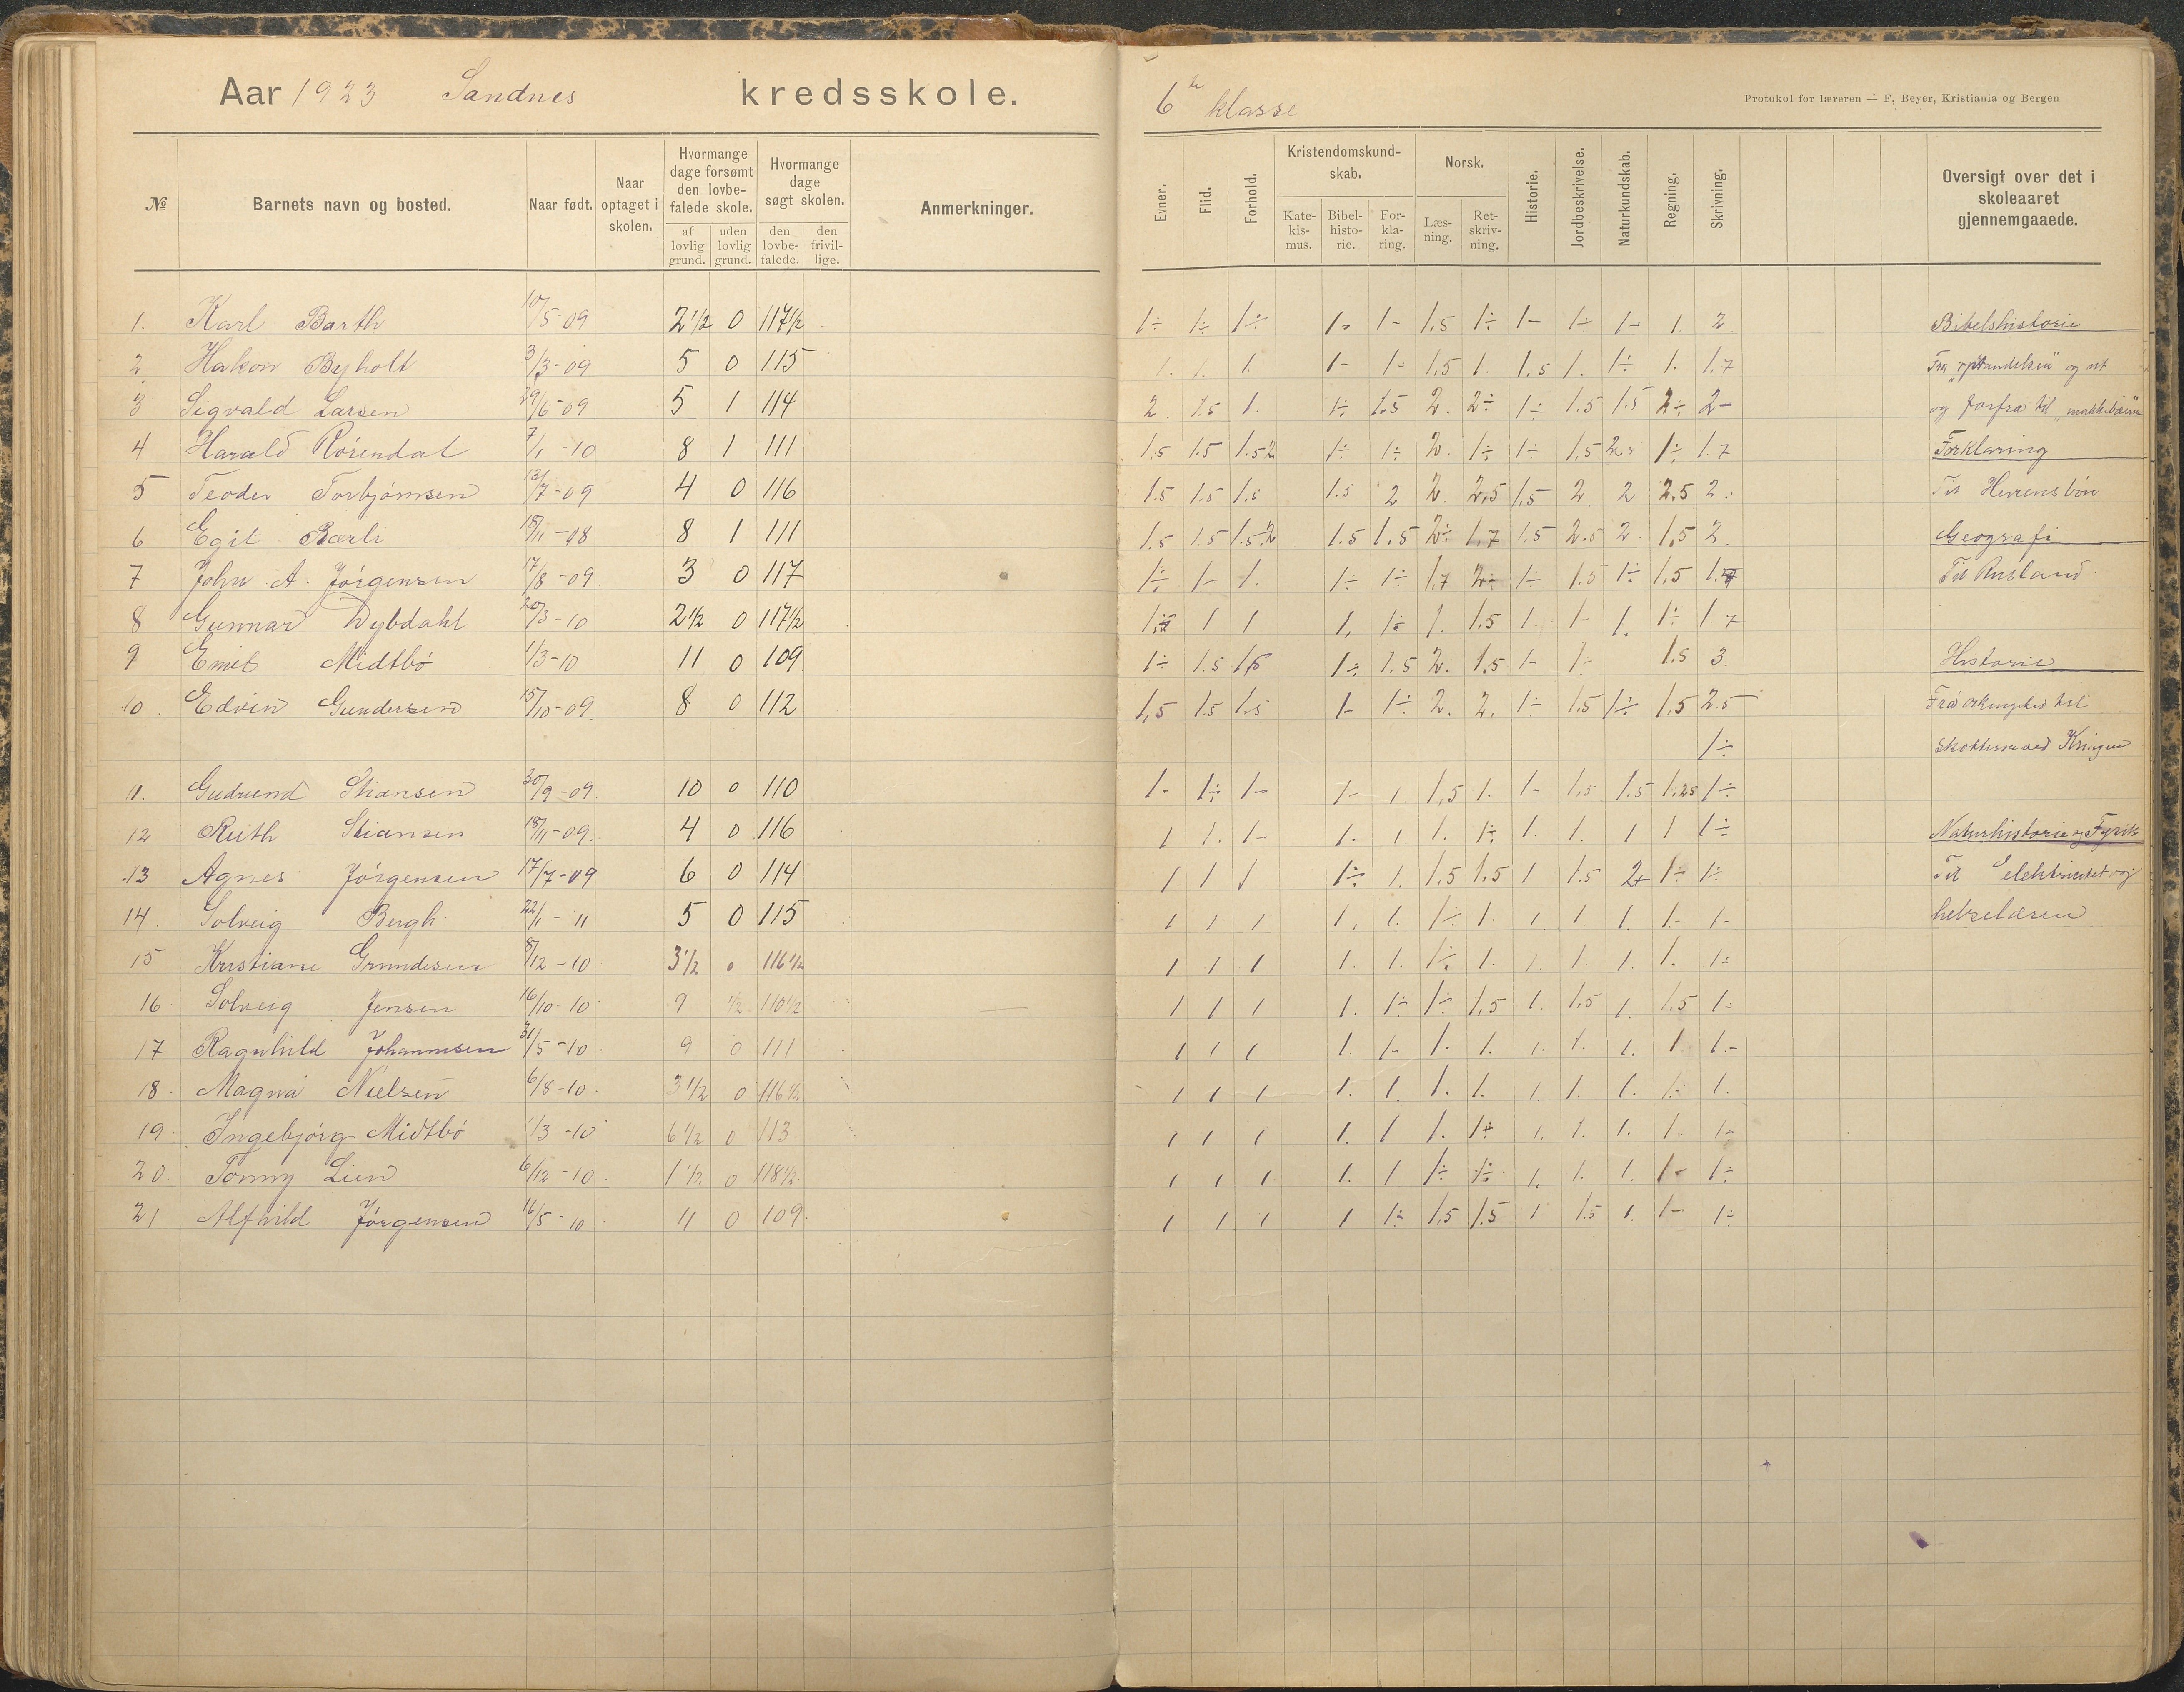 Aar 1923 Sandnes kredsskole.
6te klasse
Protokol for læreren — F. Beyer, Kristiania og Bergen
№ Barnets navn og bosted. Naar født. Naar optaget i skolen. Hvormange dage forsømt den lovbefalede skole. af lovlig grund. uden lovlig grund. Hvormange dage søgt skolen. den lovbefalede. den frivillige. Anmerkninger.
Evner. Flid. Forhold. Kristendomskundskab. Katekismus. Bibelhistorie. Forklaring. Norsk. Læsning. Retskrivning. Historie. Jordbeskrivelse. Naturkundskab. Regning. Skrivning. Oversigt over det i skoleaaret gjennemgaaede.
1. Karl Barth 10/5-09 2 1/2 0 117 1/2 1÷ 1÷ 1÷ 1- 1- 1,5 1÷ 1- 1÷ 1- 1. 2. Bibelshistorie
2 Hakon Byholt 3/3-09 5 0 115 1. 1. 1. 1- 1- 1,5 1. 1,5 1. 1÷ 1. 1,7
3 Sigvald Larsen 29/6-09 5 1 114 2. 1.5 1. 1÷ 1.5 2. 2÷ 1÷ 1.5 1.5 2÷ 2- og forfra til
4 Harald Rörendal 7/1-10 8 1 111 1,5 1.5 1.52 1÷ 1÷ 2. 1÷ 1÷ 1,5 2. 1÷ 1.7 Forklaring
5 Teodor Torbjörnsen 13/7-09 4 0 116 1.5 1.5 1.5 1.5 2 2. 2,5 1,5 2 2 2.5 2. Til Herrens bön
6 Egil Bærli 18/11-08 8 1 111 1.5 1.5 1.5.2 1.5 1,5 2÷ 1.7 1,5 2.5 2. 1,5 2. Geografi
7 John A. Jörgensen 17/8-09. 3 0 117 1÷ 1- 1. 1÷ 1÷ 1,7 2÷ 1÷ 1.5 1÷ 1,5 1.7 Til Rusland
8 Gunnar Dybdahl 20/3-10 2 1/2 0 117 1/2 1 1 1, 1÷ 1. 1.5 1. 1- 1. 1÷ 1.7
9 Emil Midtbö 1/3-10 11 0 109. 1÷ 1.5 1.5 1÷ 1.5 2. 1.5 1- 1÷ 1.5 3. Historie
10. Edvin Gundersen 15/10-09. 8 0 112 1,5 1.5 1.5 1- 1÷ 2. 2. 1÷ 1.5 1÷ 1,5 2.5 til
1÷ Skotterne ved Kringen
11. Gudrund Stiansen 30/9-09 10 0 110 1- 1÷ 1- 1- 1. 1,5 1. 1- 1.5 1.5 1.25 1÷
12 Ruth Stiansen 18/11-09. 4 0 116 1 1. 1- 1. 1 1. 1÷ 1. 1. 1 1 1÷ Naturhistorie og Fysik
13 Agnes Jörgensen 17/7-09 6 0 114 1 1 1 1÷ 1. 1,5 1.5 1 1.5 2+ 1÷ 1÷ Til Elektricitet og
14. Solveig Bergh 22/1-11 5 0 115 1 1 1 1. 1. 1÷ 1. 1. 1. 1. 1- 1- helselæren
15 Kristiane Grundesen 8/12-10 3 1/2 0 116 1/2 1 1 1 1. 1. 1÷ 1. 1. 1. 1. 1. 1÷
16 Solveig Jensen 16/10-10 9 1/2 110 1/2 1 1 1 1. 1÷ 1÷ 1,5 1. 1,5 1. 1.5 1÷
17 Ragnhild Johannesen 31/5-10 9 0 111 1 1 1 1. 1- 1. 1. 1. 1. 1. 1. 1.-
18 Magna Nielsen 6/8-10 3 1/2 0 116 1/2 1 1 1 1. 1. 1. 1. 1. 1. 1. 1. 1.
19 Ingebjörg Midtbö 1/3-10 6 1/2 0 113 1 1 1 1. 1 1. 1÷ 1. 1. 1. 1. 1-
20. Tonny Lien 6/12-10 1 1/2 0 118 1/2 1 1 1 1. 1 1÷ 1÷ 1. 1. 1. 1- 1÷
21 Alfhild Jörgensen 16/5-10 11 0 109 1 1 1 1 1÷ 1,5 1.5 1 1.5 1. 1- 1÷